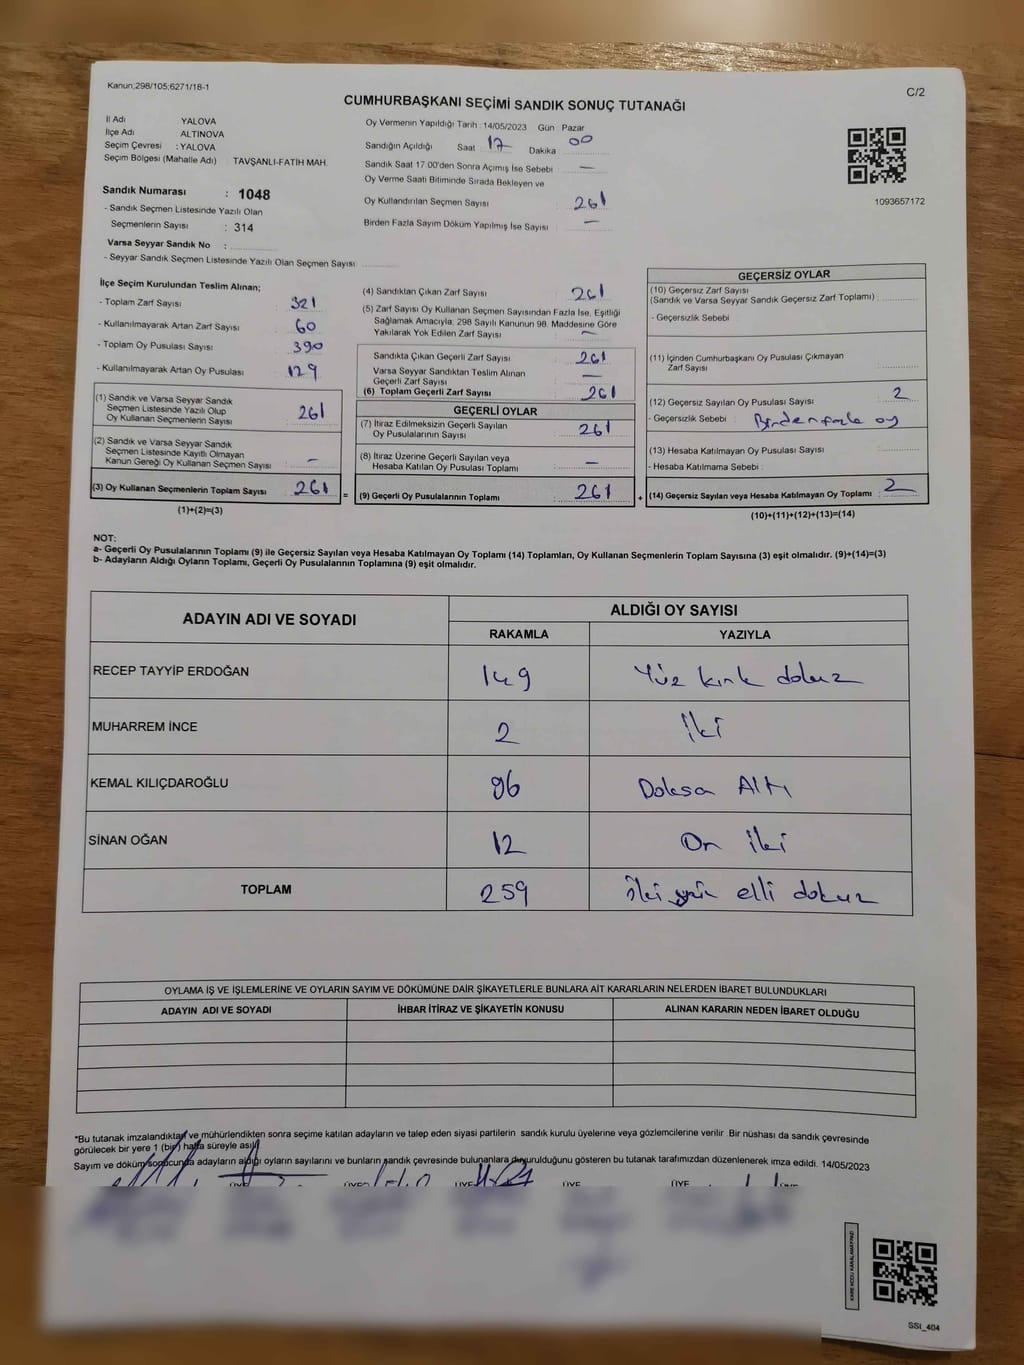 Kanun;298/105;6271/18-1
C/2
CUMHURBAŞKANI SEÇİMİ SANDIK SONUÇ TUTANAĞI
İl Adı YALOVA
İlçe Adı ALTINOVA
Seçim Çevresi : YALOVA
Seçim Bölgesi (Mahalle Adı) : TAVŞANLI-FATİH MAH.
Oy Vermenin Yapıldığı Tarih : 14/05/2023 Gün Pazar
Sandığın Açıldığı Saat 17 Dakika 00
Sandık Saat 17:00'den Sonra Açımış İse Sebebi —
Oy Verme Saati Bitiminde Sırada Bekleyen ve
Oy Kullandırılan Seçmen Sayısı 261
Birden Fazla Sayım Döküm Yapılmış İse Sayısı —
1093657172
Sandık Numarası : 1048
- Sandık Seçmen Listesinde Yazılı Olan
Seçmenlerin Sayısı : 314
Varsa Seyyar Sandık No :
- Seyyar Sandık Seçmen Listesinde Yazılı Olan Seçmen Sayısı
İlçe Seçim Kurulundan Teslim Alınan;
- Toplam Zarf Sayısı 321
- Kullanılmayarak Artan Zarf Sayısı 60
- Toplam Oy Pusulası Sayısı 390
- Kullanılmayarak Artan Oy Pusulası 129
(1) Sandık ve Varsa Seyyar Sandık
Seçmen Listesinde Yazılı Olup
Oy Kullanan Seçmenlerin Sayısı 261
(2) Sandık ve Varsa Seyyar Sandık
Seçmen Listesinde Kayıtlı Olmayan
Kanun Gereği Oy Kullanan Seçmen Sayısı : —
(3) Oy Kullanan Seçmenlerin Toplam Sayısı 261
(1)+(2)=(3)
(4) Sandıktan Çıkan Zarf Sayısı 261
(5) Zarf Sayısı Oy Kullanan Seçmen Sayısından Fazla İse, Eşitliği
Sağlamak Amacıyla; 298 Sayılı Kanunun 98. Maddesine Göre
Yakılarak Yok Edilen Zarf Sayısı —
Sandıkta Çıkan Geçerli Zarf Sayısı 261
Varsa Seyyar Sandıktan Teslim Alınan
Geçerli Zarf Sayısı —
(6) Toplam Geçerli Zarf Sayısı 261
GEÇERLİ OYLAR
(7) İtiraz Edilmeksizin Geçerli Sayılan
Oy Pusulalarının Sayısı 261
(8) İtiraz Üzerine Geçerli Sayılan veya
Hesaba Katılan Oy Pusulası Toplamı —
= (9) Geçerli Oy Pusulalarının Toplamı 261 +
GEÇERSİZ OYLAR
(10) Geçersiz Zarf Sayısı
(Sandık ve Varsa Seyyar Sandık Geçersiz Zarf Toplamı) :
- Geçersizlik Sebebi
(11) İçinden Cumhurbaşkanı Oy Pusulası Çıkmayan
Zarf Sayısı
(12) Geçersiz Sayılan Oy Pusulası Sayısı 2
- Geçersizlik Sebebi : Birden fazla oy
(13) Hesaba Katılmayan Oy Pusulası Sayısı
- Hesaba Katılmama Sebebi :
(14) Geçersiz Sayılan veya Hesaba Katılmayan Oy Toplamı : 2
(10)+(11)+(12)+(13)=(14)
NOT:
a- Geçerli Oy Pusulalarının Toplamı (9) ile Geçersiz Sayılan veya Hesaba Katılmayan Oy Toplamı (14) Toplamları, Oy Kullanan Seçmenlerin Toplam Sayısına (3) eşit olmalıdır. (9)+(14)=(3)
b- Adayların Aldığı Oyların Toplamı, Geçerli Oy Pusulalarının Toplamına (9) eşit olmalıdır.
ADAYIN ADI VE SOYADI ALDIĞI OY SAYISI
RAKAMLA YAZIYLA
RECEP TAYYİP ERDOĞAN 149 Yüz kırk dokuz
MUHARREM İNCE 2 İki
KEMAL KILIÇDAROĞLU 96 Doksa Altı
SİNAN OĞAN 12 On iki
TOPLAM 259 iki yüz elli dokuz
OYLAMA İŞ VE İŞLEMLERİNE VE OYLARIN SAYIM VE DÖKÜMÜNE DAİR ŞİKAYETLERLE BUNLARA AİT KARARLARIN NELERDEN İBARET BULUNDUKLARI
ADAYIN ADI VE SOYADI İHBAR İTİRAZ VE ŞİKAYETİN KONUSU ALINAN KARARIN NEDEN İBARET OLDUĞU
*Bu tutanak imzalandıktan ve mühürlendikten sonra seçime katılan adayların ve talep eden siyasi partilerin sandık kurulu üyelerine veya gözlemcilerine verilir Bir nüshası da sandık çevresinde
görülecek bir yere 1 (bir) hafta süreyle asılır
Sayım ve döküm sonucunda adayların aldığı oyların sayılarını ve bunların sandık çevresinde bulunanlara duyurulduğunu gösteren bu tutanak tarafımızdan düzenlenerek imza edildi. 14/05/2023
ÜYE ÜYE ÜYE ÜYE ÜYE ÜYE
KARE KODU KARALAMAYINIZ!
SSI_404